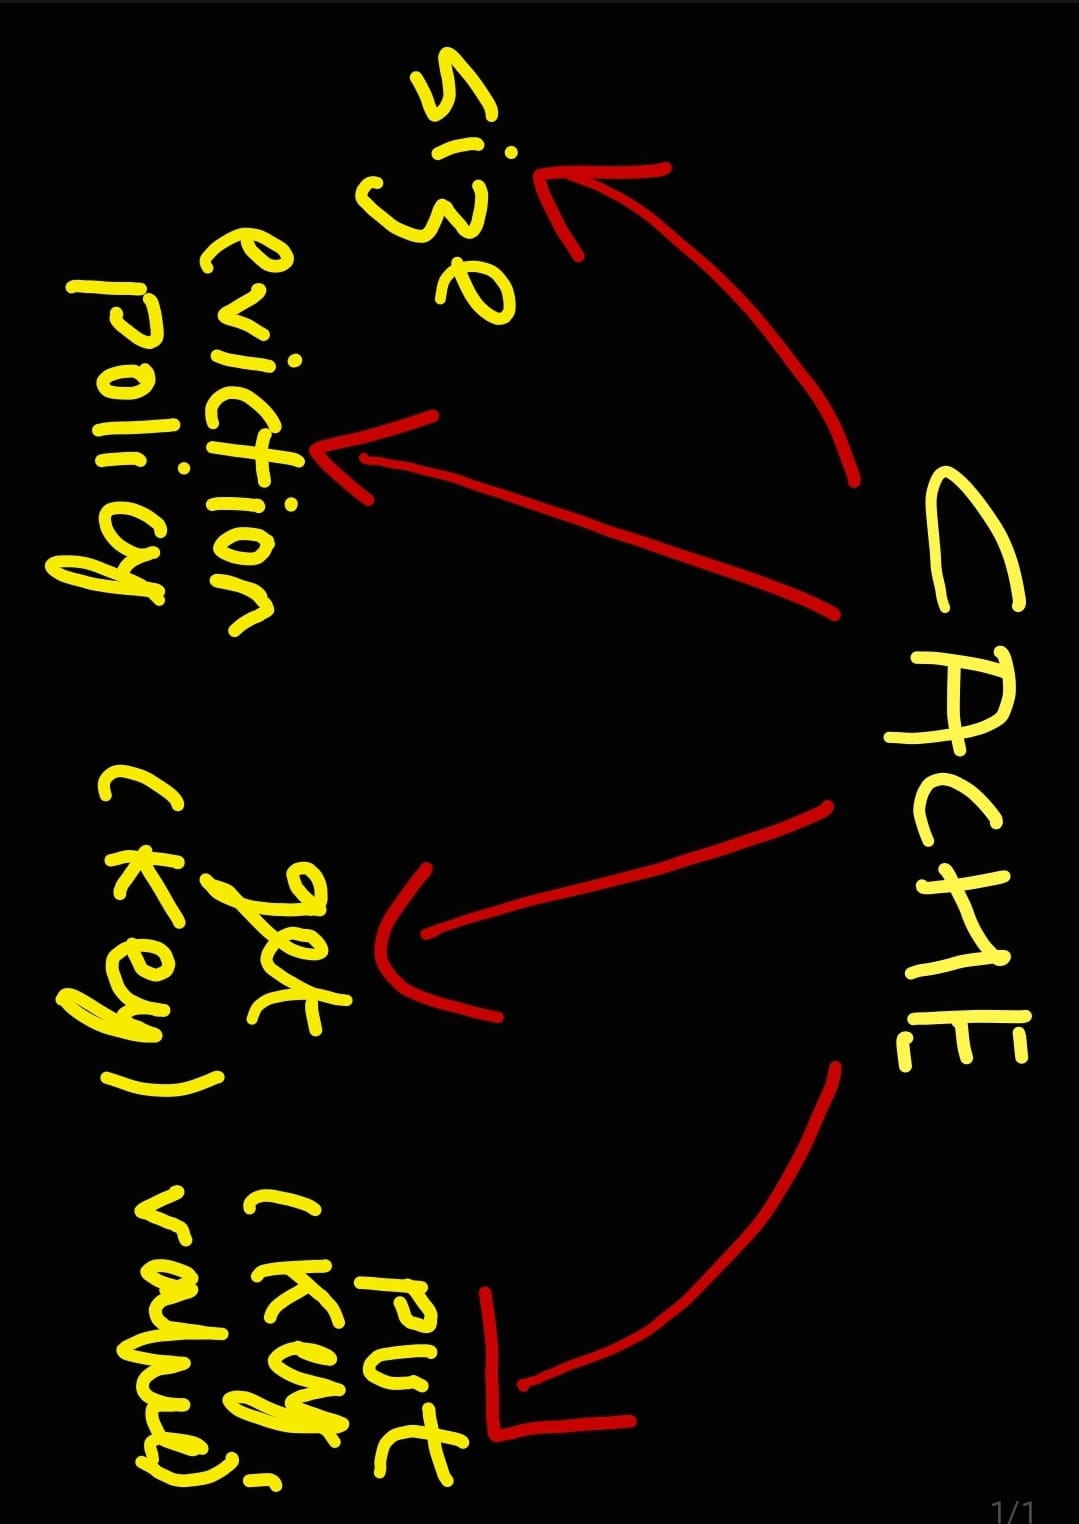 1/1
CACHE
size
eviction
policy
get
(Key)
put
(Key,
value)